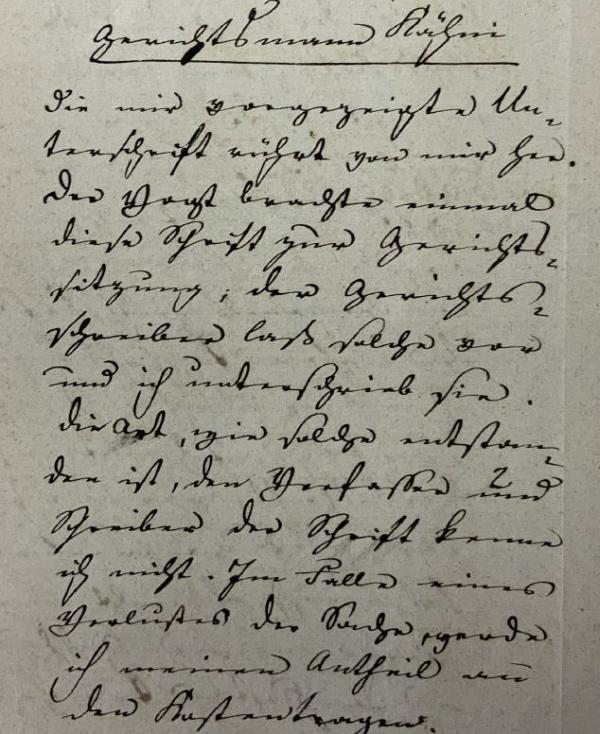 Gerichtsmann Kähni
Die mir vorgezeigte Un-
terschrift rührt von mir her.
Der Vogt brachte einmal
diese Schrift zur Gerichts-
sitzung; der Gerichts-
schreiber laß solche vor
und ich unterschrieb sie.
die Art, wie solche entstan-
den ist, den Verfasser und
Schreiber der Schrift kenne
ich nicht. Im Falle eines
Verlustes der Sache, werde
ich meinen Antheil an
den Kosten tragen.